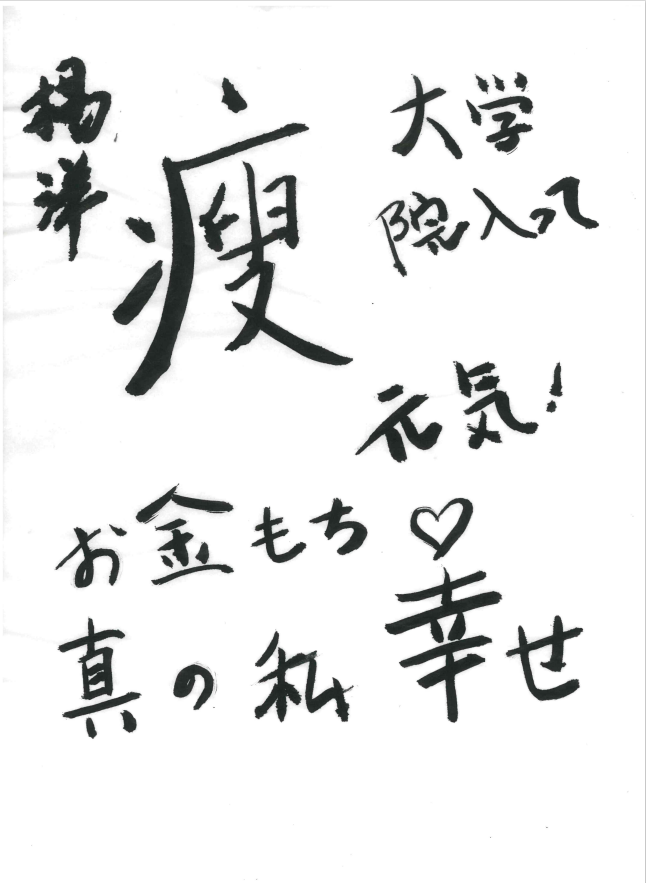 楊洋
痩
大学
院入って
元気!
お金もち♡
真の私
幸せ